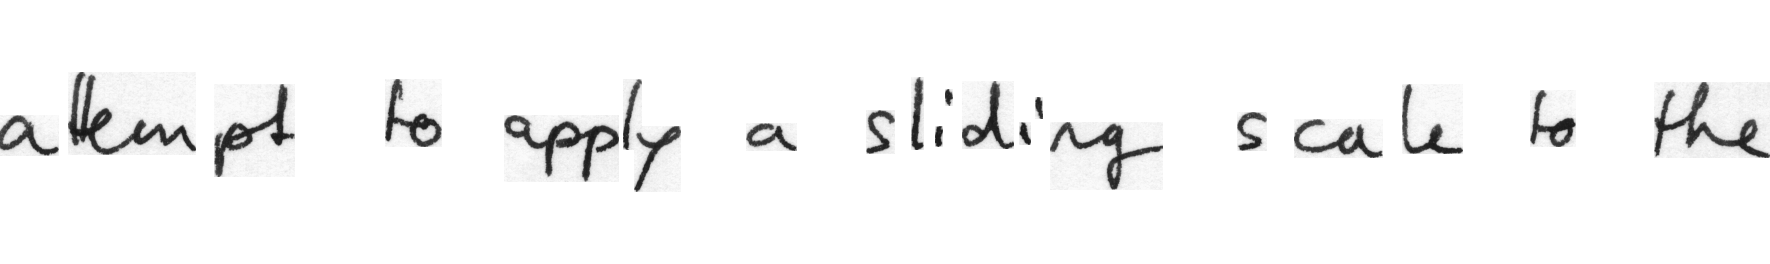 attempt to apply a sliding scale to the